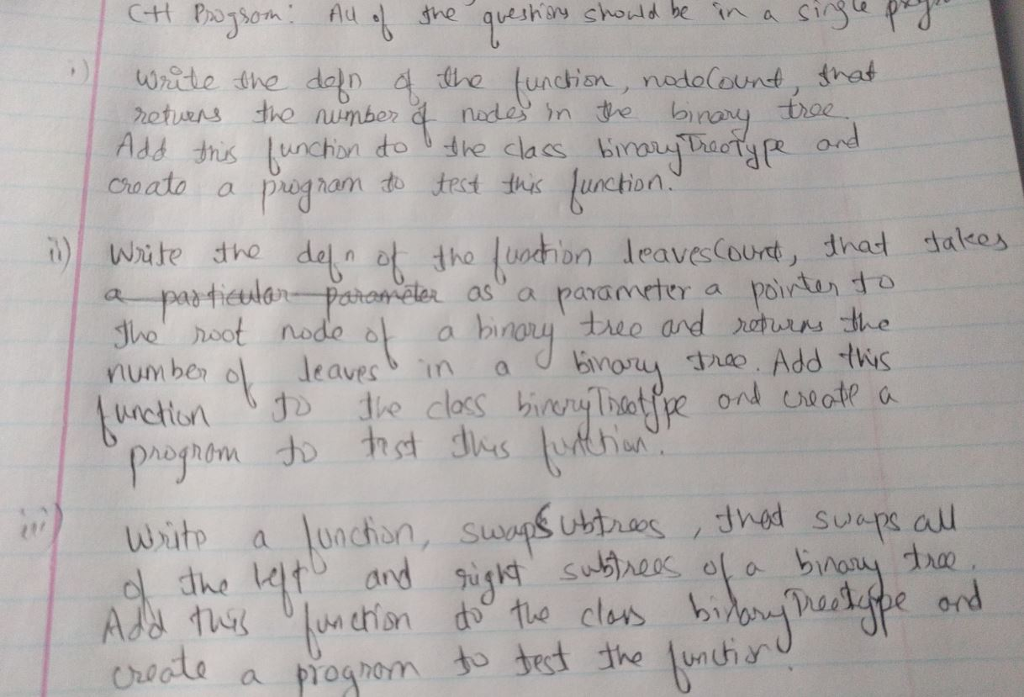 C++ Program: All of the questions should be in a single
i) Write the defn of the function, nodeCount, that
returns the number of nodes in the binary tree.
Add this function to the class binaryTreeType and
create a program to test this function.
ii) Write the defn of the function leavesCount, that takes
a particular parameter as a parameter a pointer to
the root node of a binary tree and returns the
number of leaves in a binary tree. Add this
function to the class binaryTreeType and create a
program to test this function.
iii) Write a function, swapSubtrees, that swaps all
of the left and right subtrees of a binary tree.
Add this function to the class binaryTreetype and
create a program to test the function.